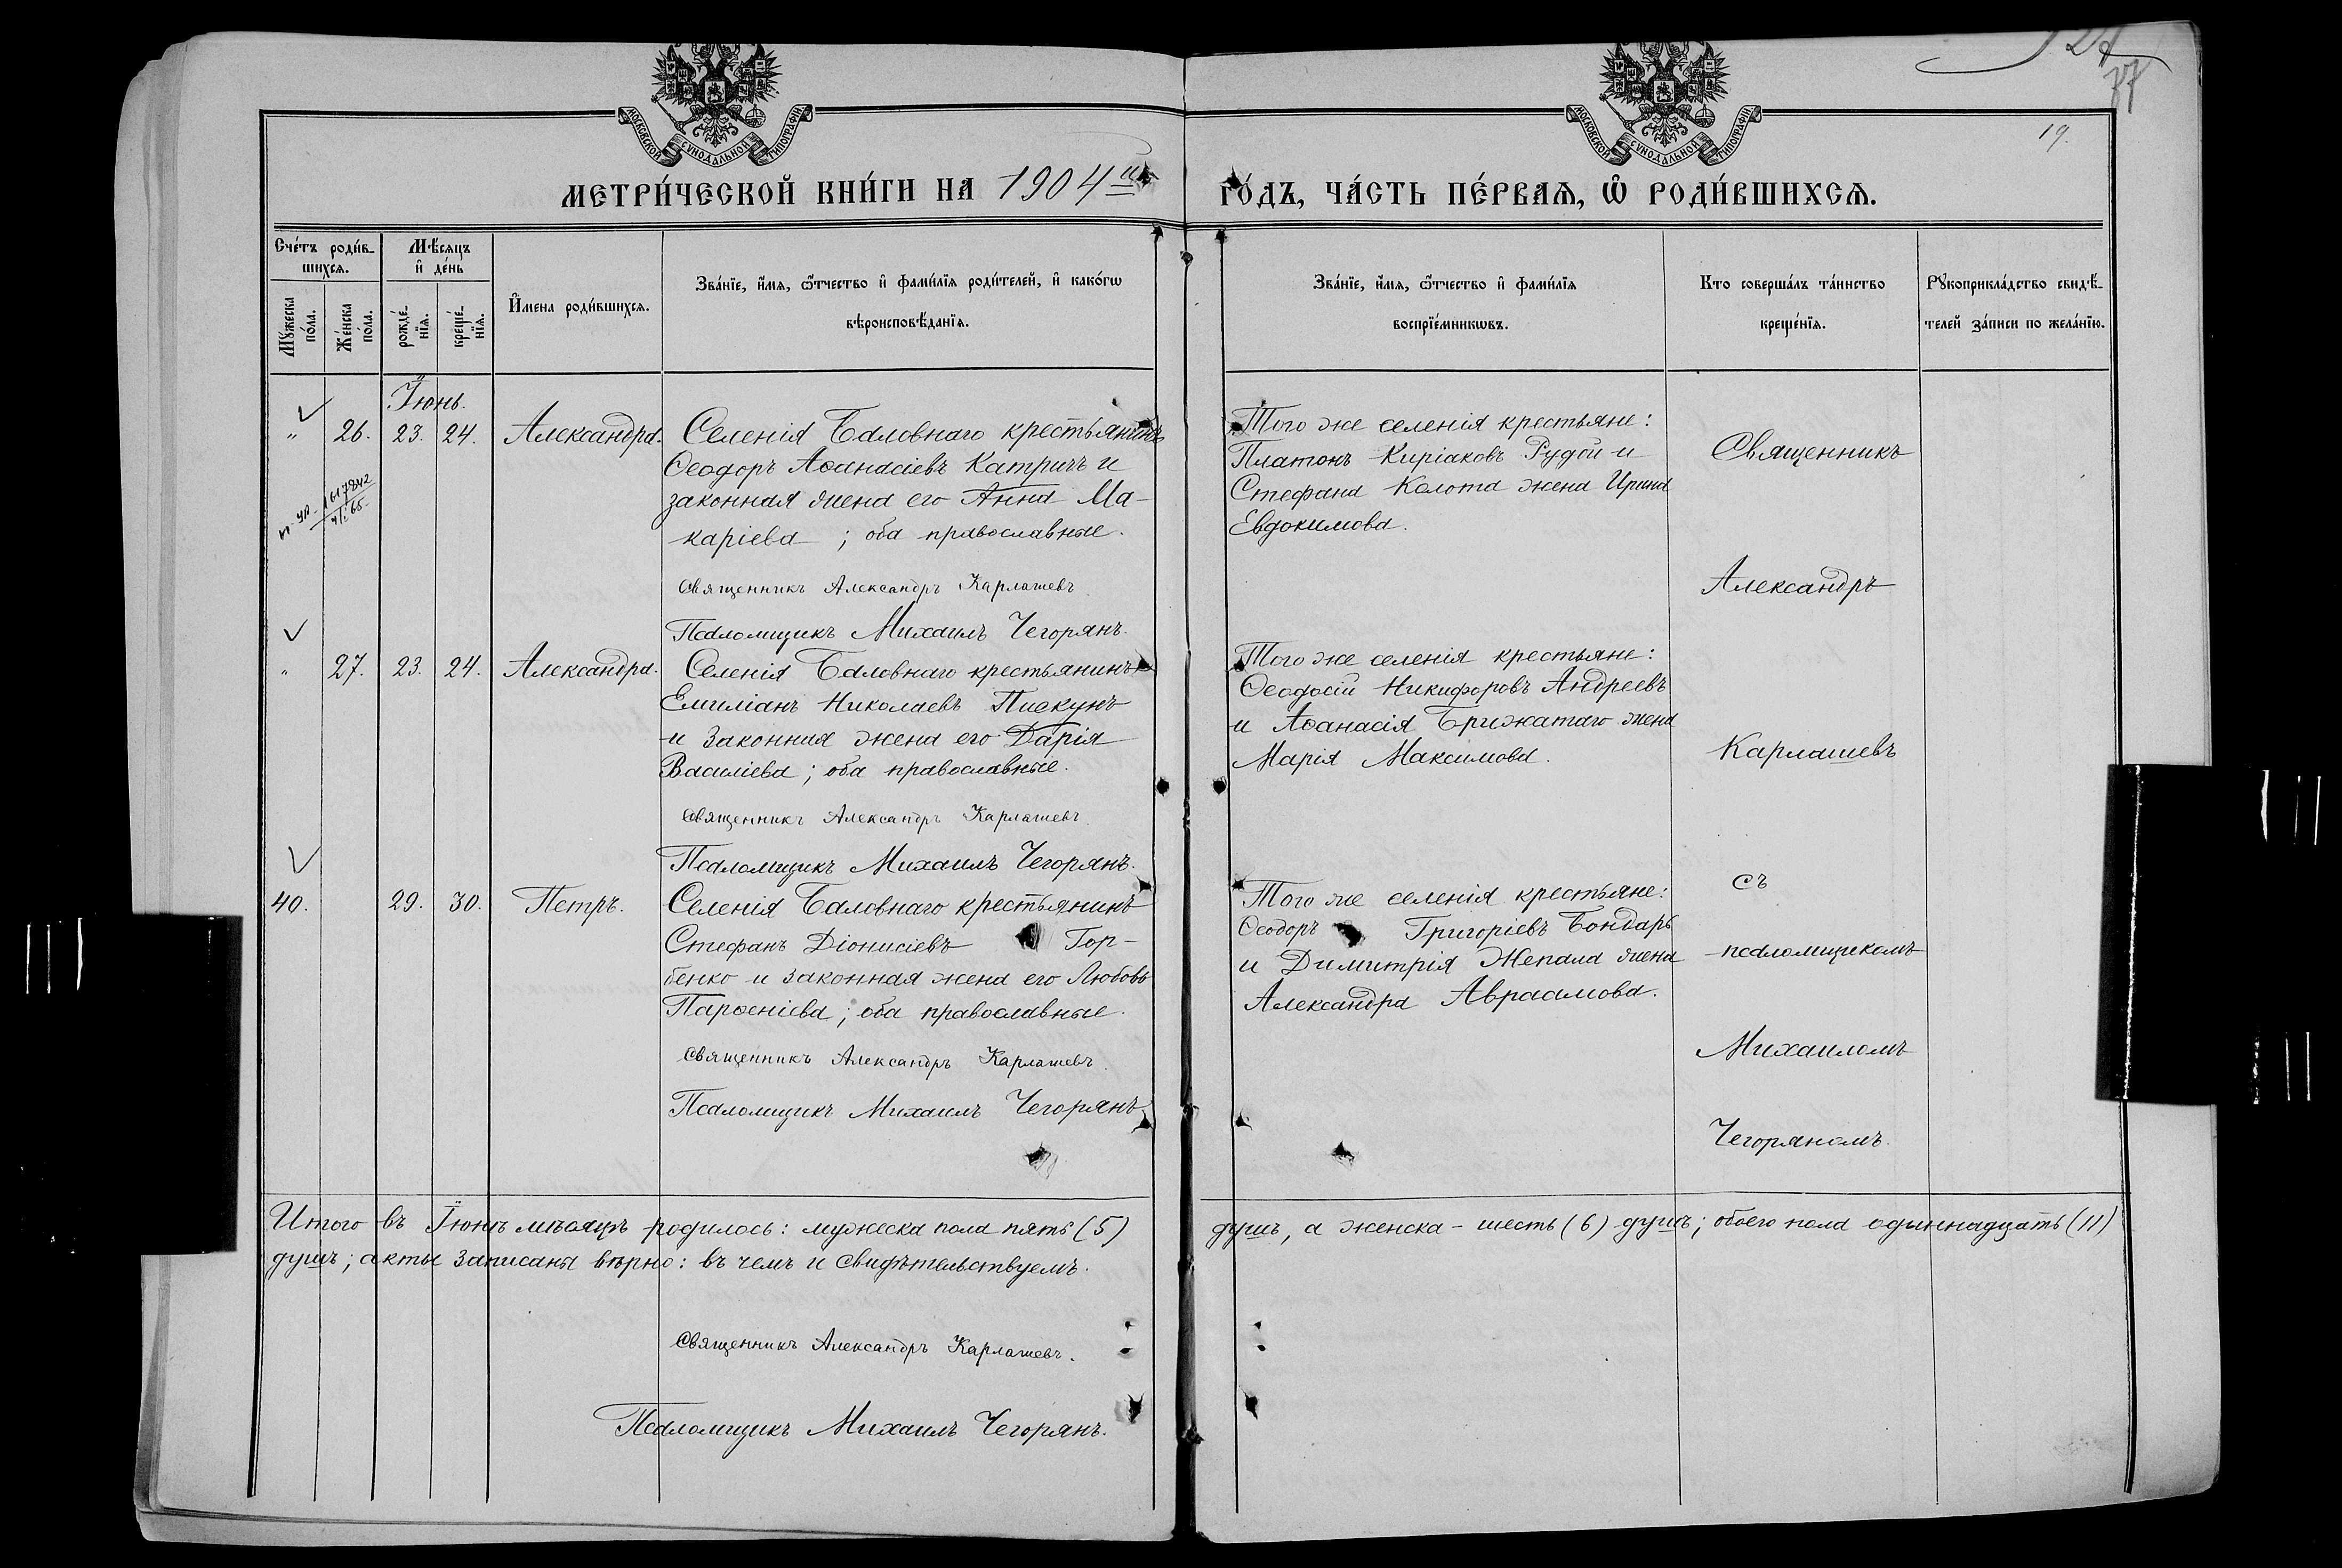 МОСКОВСКОЙ СУНОДАЛЬНОЙ ТИПОГРАФІИ
МОСКОВСКОЙ СУНОДАЛЬНОЙ ТИПОГРАФІИ
19.
МЕТРИ́ЧЕСКОЙ КНИ́ГИ НА 1904й
ГО́ДЪ, ЧА́СТЬ ПЕ́РВАѦ, Ѡ҆ РОДИ́ВШИХСѦ.
Сче́тъ роди́в-
шихсѧ.
Му́жеска по́ла.
Же́нска по́ла.
Мѣ́сяцъ
и҆ де́нь
рожде́-
нїѧ.
креще́-
нїѧ.
И҆мена роди́вшихсѧ.
Зва́нїе, и҆́мѧ, ѻ҆́тчество и҆ фами́лїѧ роди́телей, и҆ како́гѡ
вѣроисповѣ́данїѧ.
Зва́нїе, и҆́мѧ, ѻ҆́тчество и҆ фами́лїѧ
воспрїе́мникѡвъ.
Кто соверша́лъ та́инство
креще́нїѧ.
Рꙋкоприкла́дство свидѣ́-
телей за́писи по жела́нїю.
Іюнь.
" 26. 23. 24. Александра.
Селенія Баловнаго крестьянинъ
Ѳеодоръ Аѳанасіевъ Катричъ и
законная жена его Анна Ма-
каріева ; оба православные.
Священникъ Александръ Карлашевъ
Псаломщикъ Михаилъ Чегорянъ.
Того же селенія крестьяне:
Платонъ Киріаковъ Рудой и
Стефана Колота жена Ирина
Евдокимова.
" 27. 23. 24. Александра.
Селенія Баловнаго крестьянинъ
Емиліанъ Николаевъ Пискунъ
и законная жена его Дарія
Василіева; оба православные.
Священникъ Александръ Карлашевъ
Псаломщикъ Михаилъ Чегорянъ.
Того же селенія крестьяне:
Ѳеодосій Никифоровъ Андреевъ
и Аѳанасія Брижатаго жена
Марія Максимова.
40. 29. 30. Петръ.
Селенія Баловнаго крестьянинъ
Стефанъ Діонисіевъ Гор-
бенко и законная жена его Любовь
Парѳеніева; оба православные.
Священникъ Александръ Карлашевъ
Псаломщикъ Михаилъ Чегорянъ
Того же селенія крестьяне:
Ѳеодоръ Григоріевъ Бондарь
и Димитрія Жепала жена
Александра Авраамова.
Священникъ
Александръ
Карлашевъ
съ
псаломщикомъ
Михаиломъ
Чегоряномъ.
Итого въ Іюнѣ мѣсяцѣ родилось: мужеска пола пять (5)
душъ, а женска - шесть (6) душъ; обоего пола одыннадцать (11)
душъ; акты записаны вѣрно: въ чемъ и свидѣтельствуемъ.
Священникъ Александръ Карлашевъ.
Псаломщикъ Михаилъ Чегорянъ.